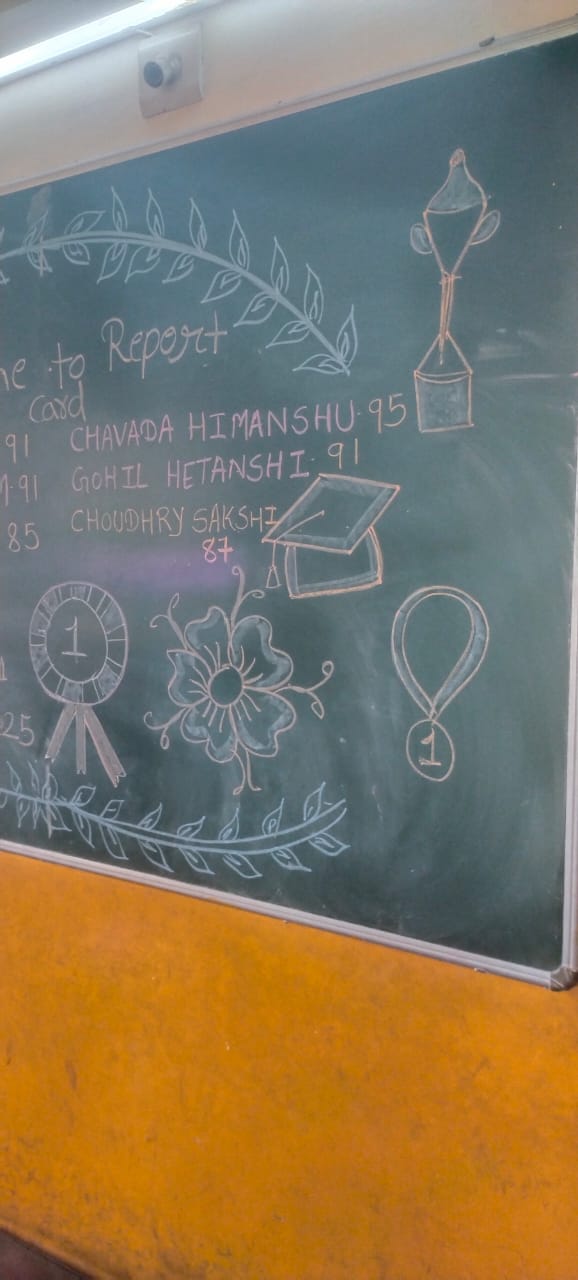 to Report
Card
91 CHAVADA HIMANSHU. 95
.91 GOHIL HETANSHI. 91
85 CHOUDHRY SAKSHI
87
1
25
1